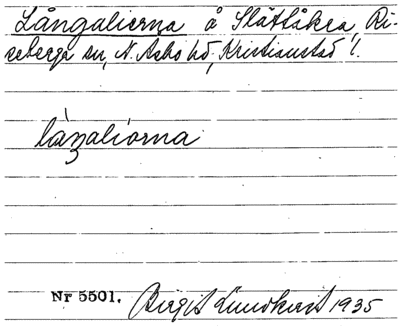 Långalierna å Slättåkra, Ri-
seberga sn, N. Asbo hd, Kristianstad l.
låŋaliorna
Nr 5501. Birgit Lundkvist 1935